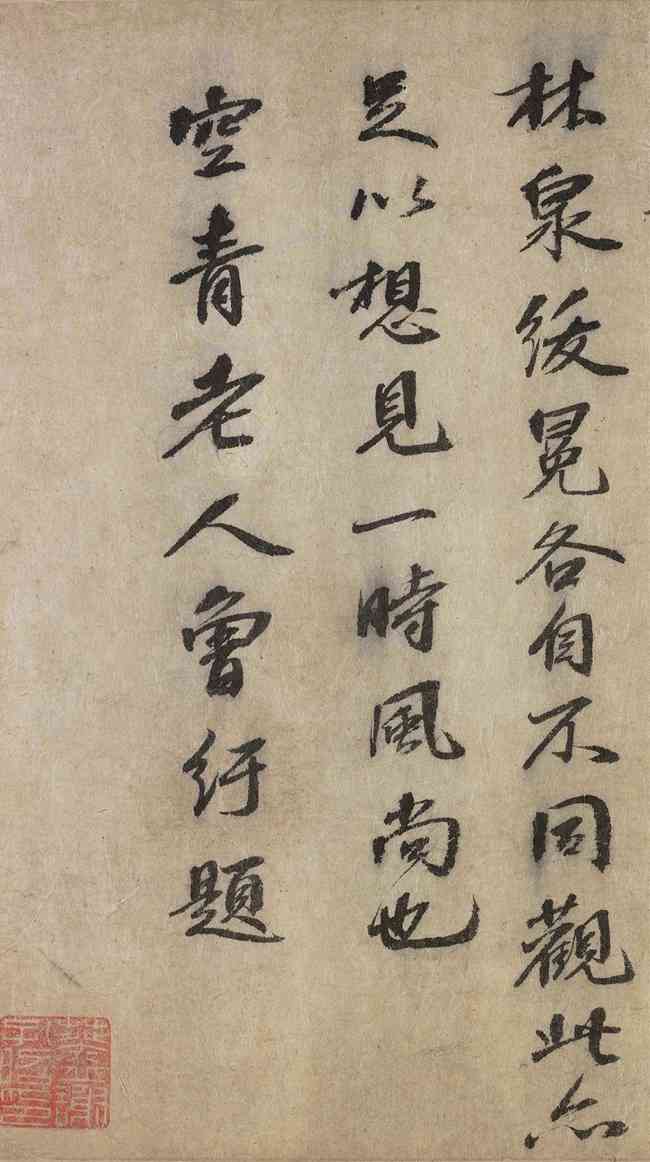 林泉紱冕各自不同觀此亦
足以想見一時風尚也
空青老人曾紆題